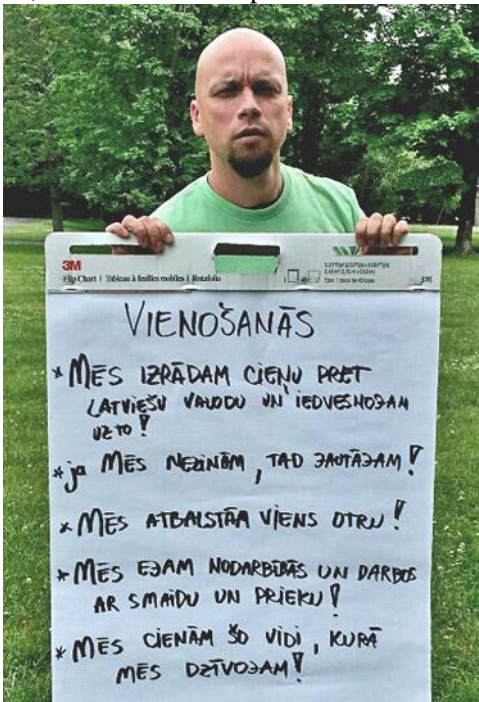 3M
Flip Chart | Tableau à feuilles mobiles | Rotafolio
VIENOŠANĀS
* MĒS IZRĀDAM CIEŅU PRET
LATVIEŠU VALODU UN IEDVESMOJAM
UZ TO!
* ja MĒS NEZINĀM, TAD JAUTĀJAM!
* MĒS ATBALSTĀM VIENS OTRU!
* MĒS EJAM NODARBĪBĀS UN DARBOS
AR SMAIDU UN PRIEKU!
* MĒS CIENĀM ŠO VIDI, KURĀ
MĒS DZĪVOJAM!